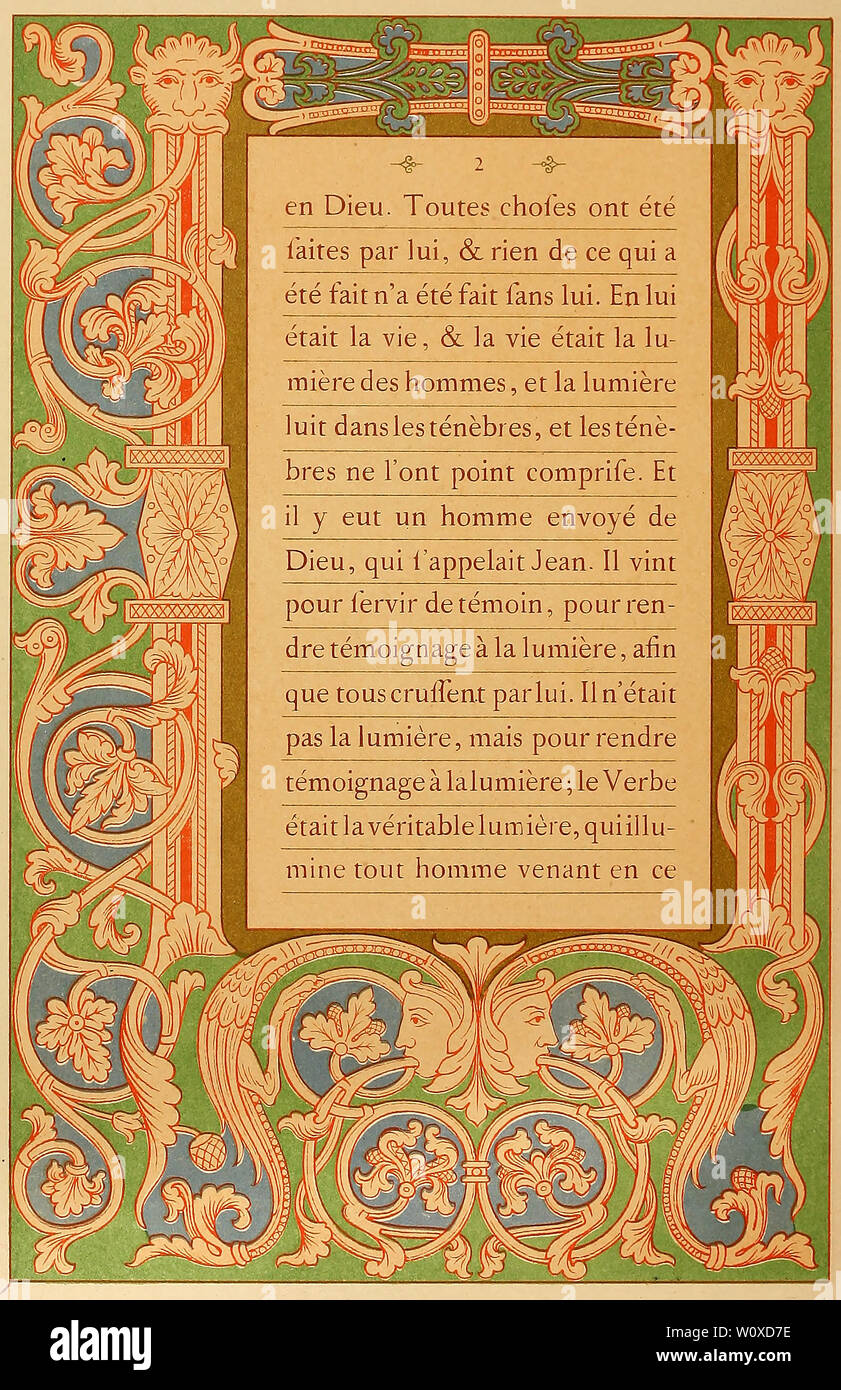 2
en Dieu. Toutes choſes ont été
ſaites par lui, & rien de ce qui a
été fait n'a été fait ſans lui. En lui
était la vie, & la vie était la lu-
mière des hommes, et la lumière
luit dans les ténèbres, et les ténè-
bres ne l'ont point compriſe. Et
il y eut un homme envoyé de
Dieu, qui ſ'appelait Jean. Il vint
pour ſervir de témoin, pour ren-
dre témoignage à la lumière, afin
que tous cruſſent par lui. Il n'était
pas la lumière, mais pour rendre
témoignage à la lumière; le Verbe
était la véritable lumière, qui illu-
mine tout homme venant en ce
alamy
Image ID: W0XD7E
www.alamy.com